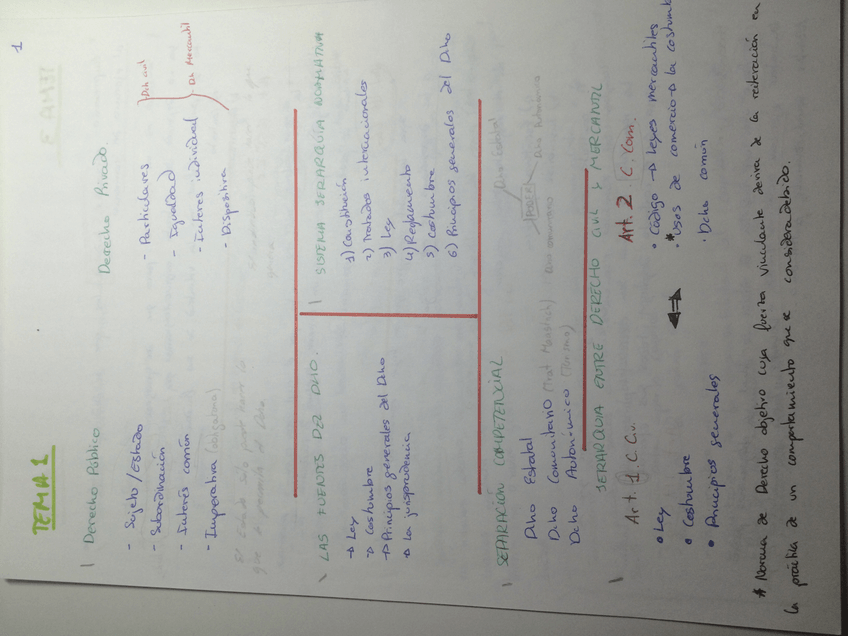 1
TEMA 1
Derecho Público
- Sujeto/Estado
- Subordinación
- Interés común
- Imperativa (obligatoria)
El Estado solo puede hacer lo
que le permite el Dcho
Derecho Privado.
- Particulares
- Igualdad
- Interés individual
- Dispositiva
Dcho civil
Dcho Mercantil
LAS FUENTES DEL DCHO.
→ Ley
→ Costumbre
→ Principios generales del Dcho
→ La jurisprudencia
SISTEMA JERARQUIA NORMATIVA
1) Constitución
2) Tratados internacionales
3) Ley
4) Reglamento
5) Costumbre
6) Principios generales del Dcho
SEPARACIÓN COMPETENCIAL
Dcho Estatal
Dcho Comunitario
Dcho Autonómico
JERARQUIA ENTRE DERECHO CIVIL Y MERCANTIL
Art. 1. C. Civ.
• Ley
• Costumbre
• Principios generales
Art. 2 C. Com.
• Código → Leyes mercantiles
• *Usos de comercio → la costumb
• Dcho común
* Norma de Derecho objetivo cuya fuerza vinculante deriva de la reiteración en
la práctica de un comportamiento que se considera debido.